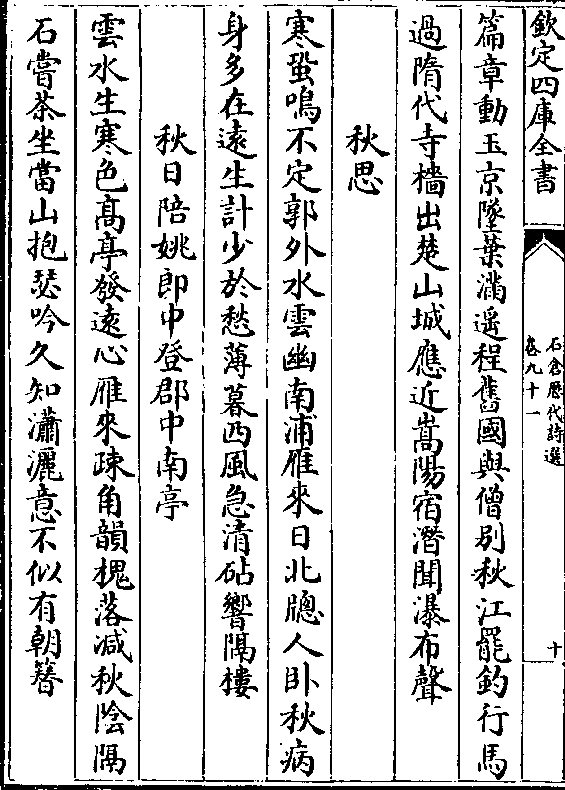 欽定四庫全書
石倉歷代詩選
卷九十一
十
篇章動玉京墜葉滿遥程舊國與僧別秋江罷釣行馬
過隋代寺檣出楚山城應近嵩陽宿潛聞瀑布聲
秋思
寒蛩鳴不定郭外水雲幽南浦雁來日北牎人卧秋病
身多在遠生計少於愁薄暮西風急清砧響隔樓
秋日陪姚郎中登郡中南亭
雲水生寒色高亭發遠心雁來疎角韻槐落減秋陰隔
石嘗茶坐當山抱瑟吟久知瀟灑意不似有朝簪